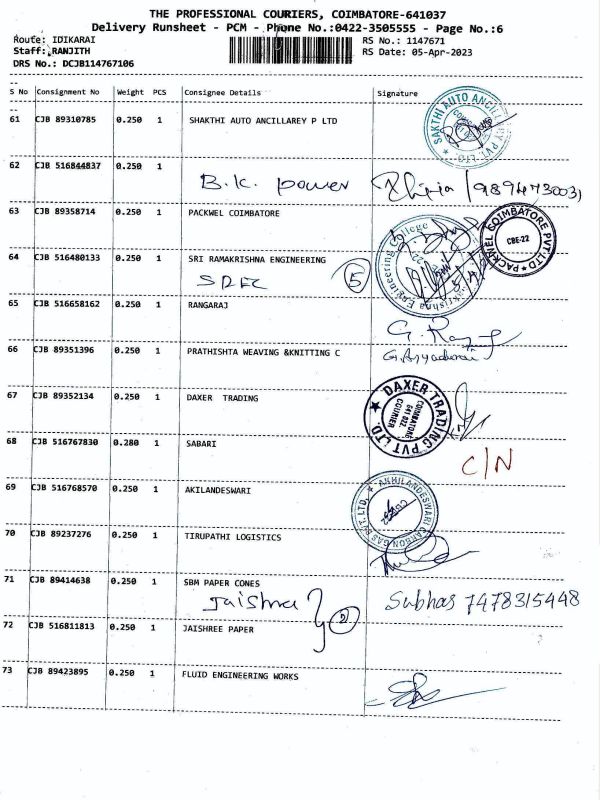 THE PROFESSIONAL COURIERS, COIMBATORE-641037
Delivery Runsheet - PCM - Phone No.:0422-3505555 - Page No.:6
Route: IDIKARAI
RS No.: 1147671
Staff: RANJITH
RS Date: 05-Apr-2023
DRS No.: DCJB114767106
S No Consignment No Weight PCS Consignee Details Signature
61 CJB 89310785 0.250 1 SHAKTHI AUTO ANCILLAREY P LTD
SAKTHI AUTO ANCILLARY PVT. LTD.
62 CJB 516844837 0.250 1
B.K. power
63 CJB 89358714 0.250 1 PACKWEL COIMBATORE
PACKWEL COIMBATORE PVT LTD
CBE-22
64 CJB 516480133 0.250 1 SRI RAMAKRISHNA ENGINEERING
SREC 5
Engineering College
65 CJB 516658162 0.250 1 RANGARAJ
66 CJB 89351396 0.250 1 PRATHISHTA WEAVING &KNITTING C
67 CJB 89352134 0.250 1 DAXER TRADING
DAXER TRADING PVT LTD
COIMBATORE
641 022
COURIER
68 CJB 516767830 0.280 1 SABARI
C/N
69 CJB 516768570 0.250 1 AKILANDESWARI
AKHILANDESWARI CARBON GAS PVT LTD.
70 CJB 89237276 0.250 1 TIRUPATHI LOGISTICS
71 CJB 89414638 0.250 1 SBM PAPER CONES
Subhas 7478315448
2
72 CJB 516811813 0.250 1 JAISHREE PAPER
73 CJB 89423895 0.250 1 FLUID ENGINEERING WORKS